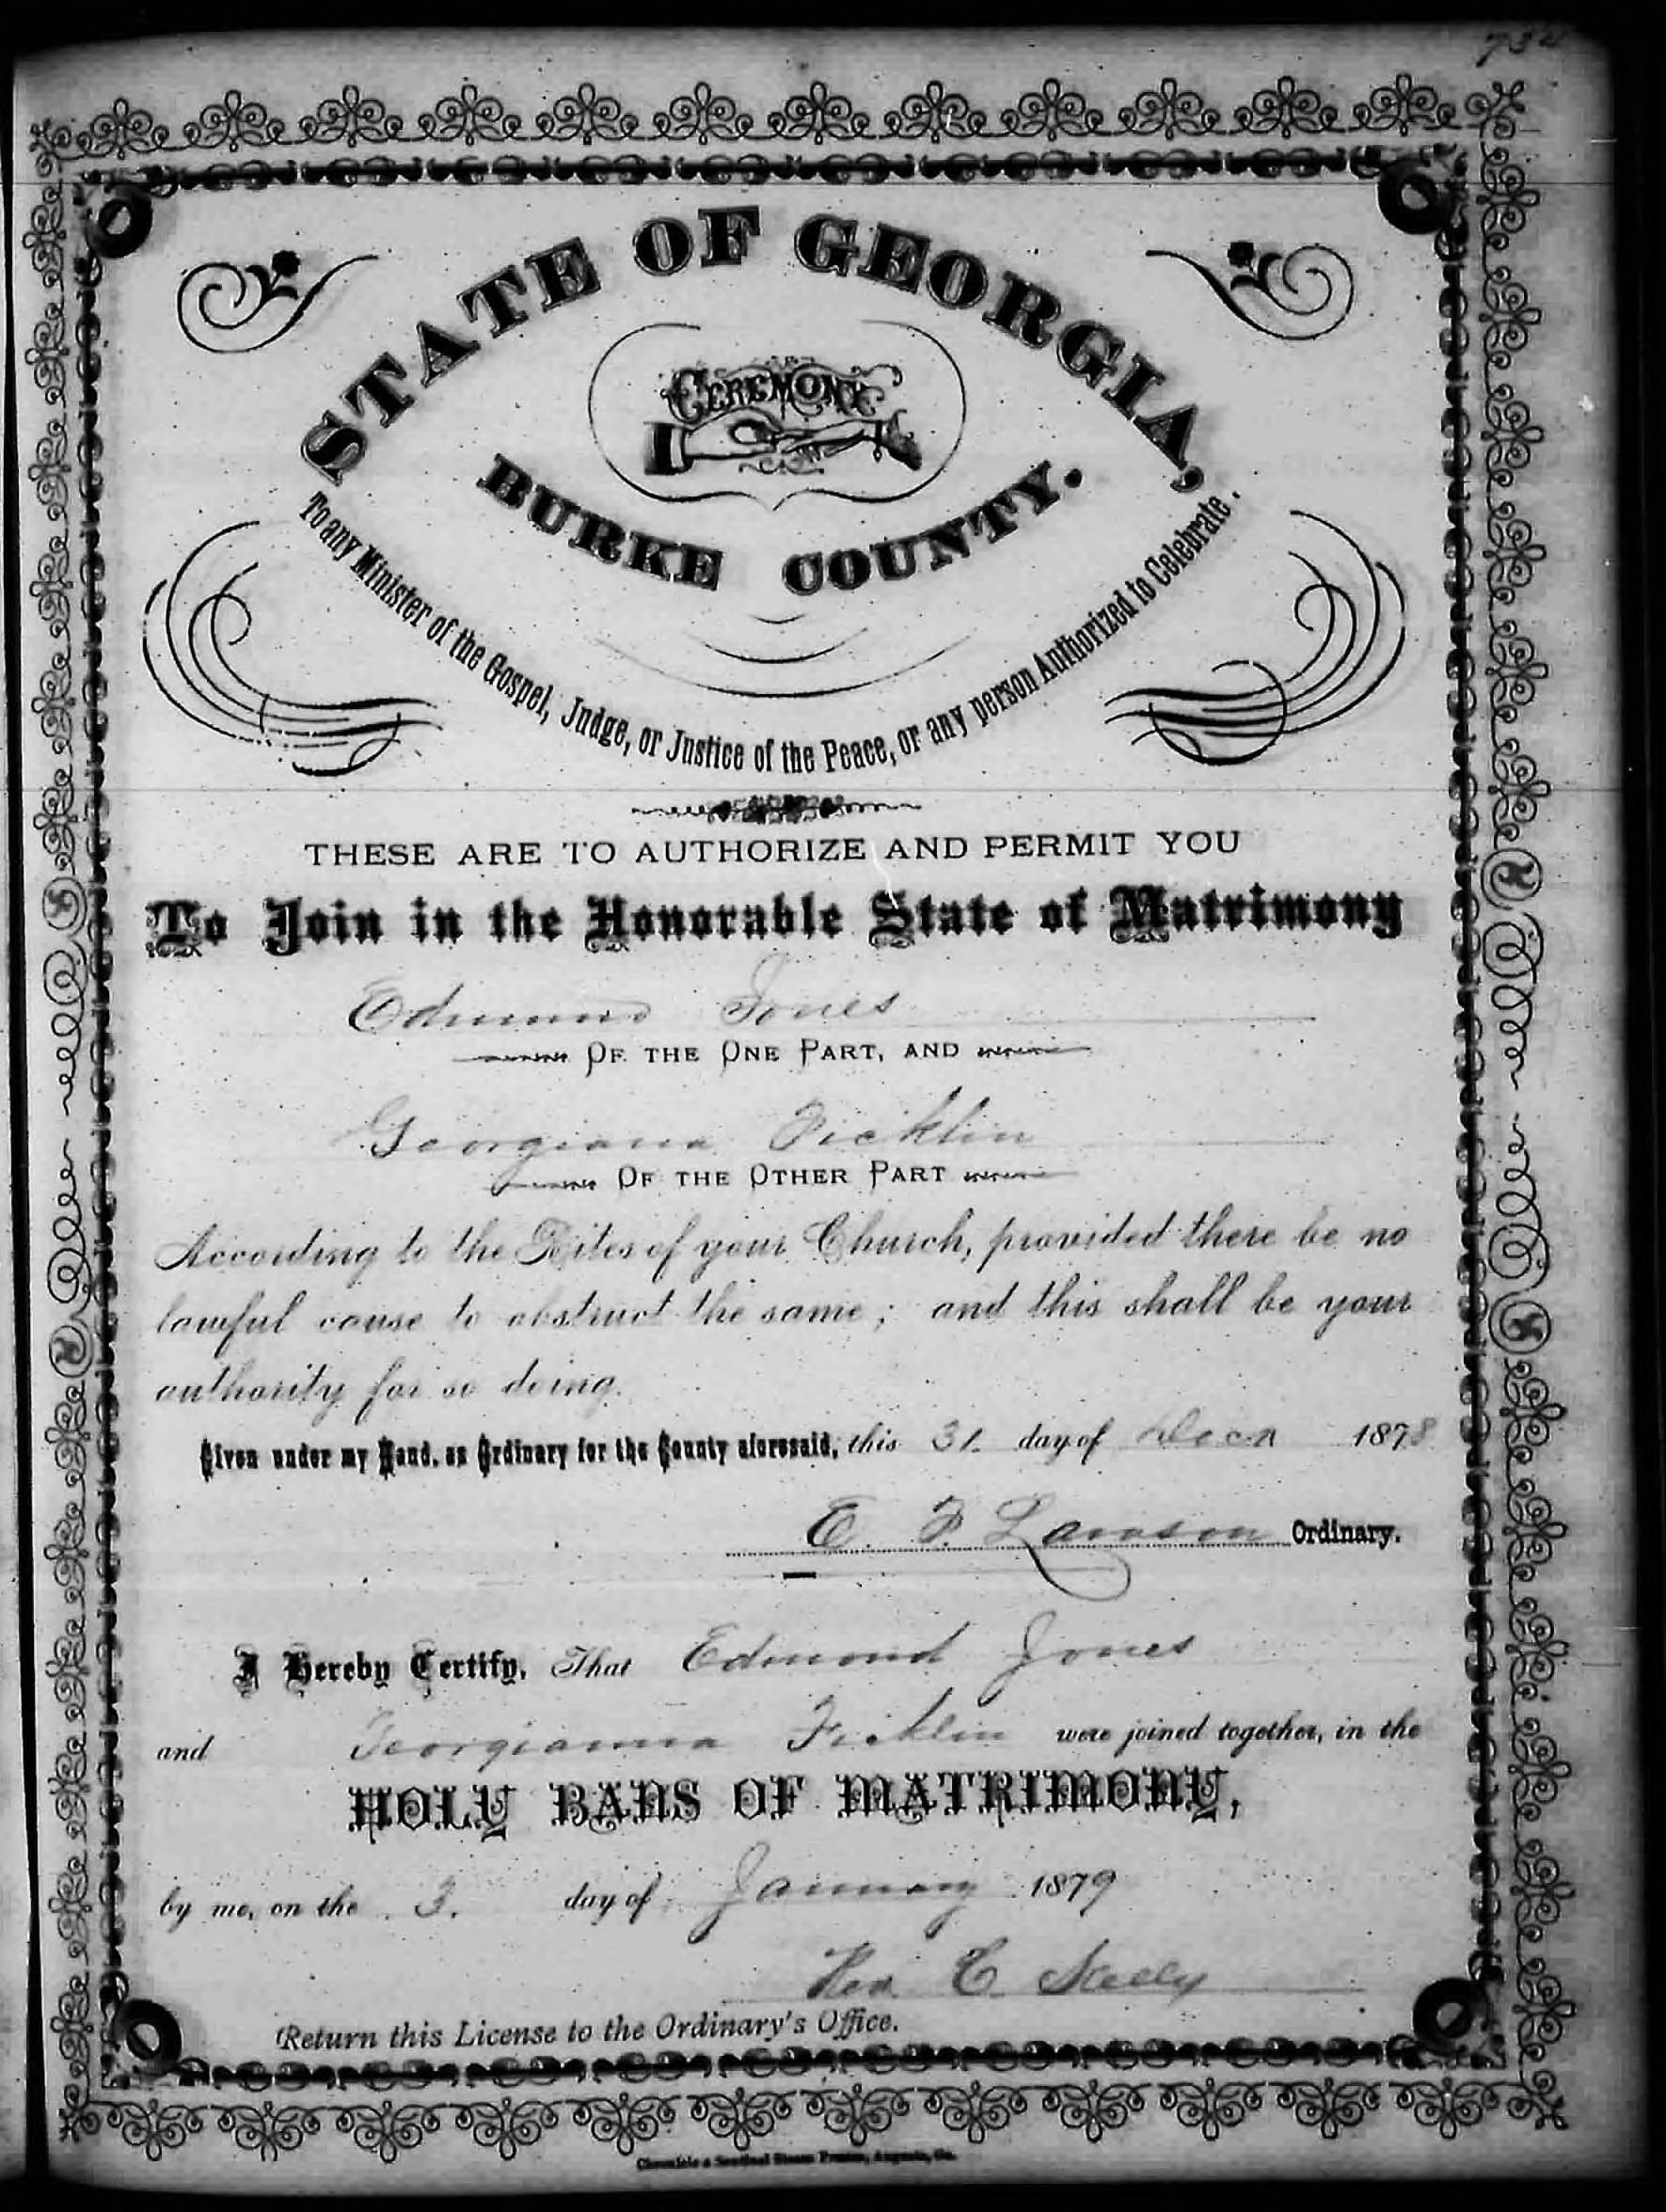 734
STATE OF GEORGIA,
CEREMONY
BURKE COUNTY.
To any Minister of the Gospel, Judge, or Justice of the Peace, or any person Authorized to Celebrate.
THESE ARE TO AUTHORIZE AND PERMIT YOU
To Join in the Honorable State of Matrimony
Edmund Jones
OF THE ONE PART, AND
Georgiana Ficklin
OF THE OTHER PART
According to the Rites of your Church, provided there be no
lawful cause to obstruct the same; and this shall be your
authority for so doing.
Given under my Hand, as Ordinary for the County aforesaid, this 31. day of Decr 1878
E. F. Lawson Ordinary.
I Hereby Certify, That Edmond Jones
and Georgianna Ficklin were joined together, in the
HOLY BANS OF MATRIMONY,
by me, on the 3. day of January 1879
Rev. C.
Return this License to the Ordinary's Office.
Chronicle & Sentinel Steam Presses, Augusta, Ga.